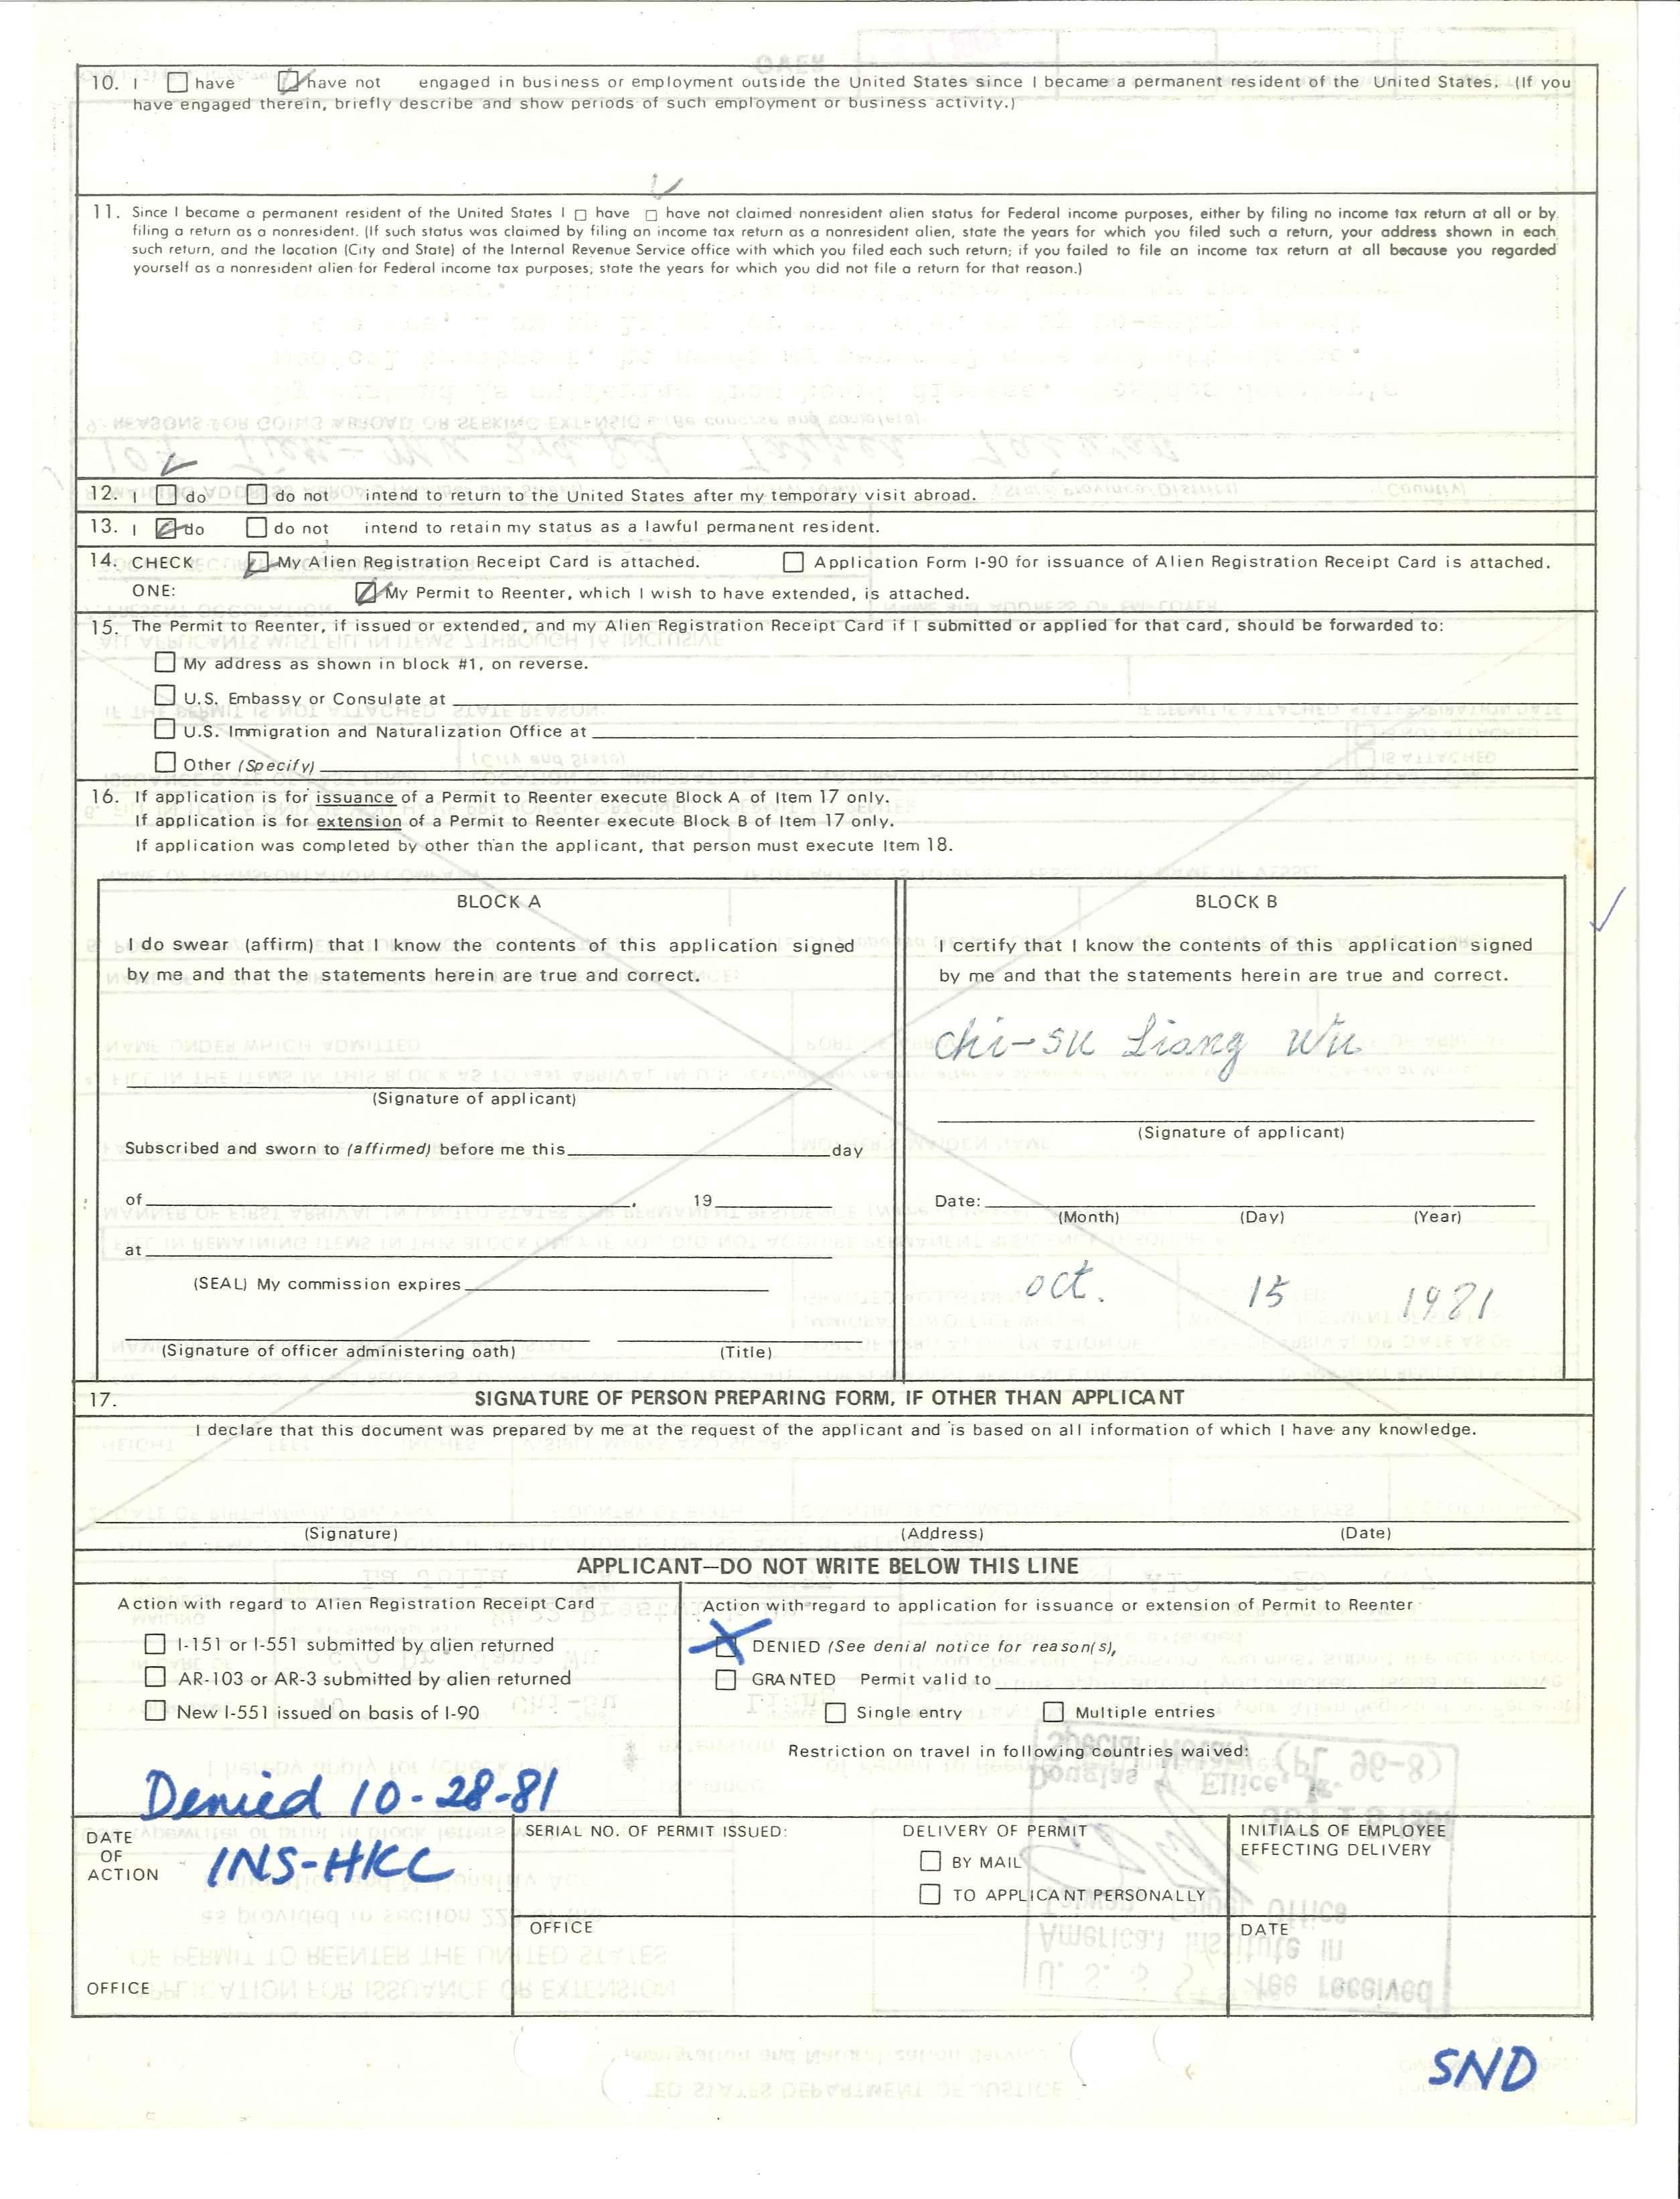 10. I ☐ have ☑ have not engaged in business or employment outside the United States since I became a permanent resident of the United States. (If you
have engaged therein, briefly describe and show periods of such employment or business activity.)
✓
11. Since I became a permanent resident of the United States I ☐ have ☐ have not claimed nonresident alien status for Federal income purposes, either by filing no income tax return at all or by
filing a return as a nonresident. (If such status was claimed by filing an income tax return as a nonresident alien, state the years for which you filed such a return, your address shown in each
such return, and the location (City and State) of the Internal Revenue Service office with which you filed each such return; if you failed to file an income tax return at all because you regarded
yourself as a nonresident alien for Federal income tax purposes, state the years for which you did not file a return for that reason.)
12. I ☑ do ☐ do not intend to return to the United States after my temporary visit abroad.
13. I ☑ do ☐ do not intend to retain my status as a lawful permanent resident.
14. CHECK ☑ My Alien Registration Receipt Card is attached. ☐ Application Form I-90 for issuance of Alien Registration Receipt Card is attached.
ONE: ☑ My Permit to Reenter, which I wish to have extended, is attached.
15. The Permit to Reenter, if issued or extended, and my Alien Registration Receipt Card if I submitted or applied for that card, should be forwarded to:
☐ My address as shown in block #1, on reverse.
☐ U.S. Embassy or Consulate at
☐ U.S. Immigration and Naturalization Office at
☐ Other (Specify)
16. If application is for issuance of a Permit to Reenter execute Block A of Item 17 only.
If application is for extension of a Permit to Reenter execute Block B of Item 17 only.
If application was completed by other than the applicant, that person must execute Item 18.
BLOCK A
I do swear (affirm) that I know the contents of this application signed
by me and that the statements herein are true and correct.
(Signature of applicant)
Subscribed and sworn to (affirmed) before me this day
of , 19
at
(SEAL) My commission expires
(Signature of officer administering oath) (Title)
BLOCK B
I certify that I know the contents of this application signed
by me and that the statements herein are true and correct.
chi-su Liang Wu
(Signature of applicant)
Date:
(Month) (Day) (Year)
oct. 15 1981
17. SIGNATURE OF PERSON PREPARING FORM, IF OTHER THAN APPLICANT
I declare that this document was prepared by me at the request of the applicant and is based on all information of which I have any knowledge.
(Signature) (Address) (Date)
APPLICANT—DO NOT WRITE BELOW THIS LINE
Action with regard to Alien Registration Receipt Card
☐ I-151 or I-551 submitted by alien returned
☐ AR-103 or AR-3 submitted by alien returned
☐ New I-551 issued on basis of I-90
Action with regard to application for issuance or extension of Permit to Reenter
☒ DENIED (See denial notice for reason(s),
☐ GRANTED Permit valid to
☐ Single entry ☐ Multiple entries
Restriction on travel in following countries waived:
Denied 10-28-81
DATE
OF
ACTION
INS-HKC
OFFICE
SERIAL NO. OF PERMIT ISSUED:
OFFICE
DELIVERY OF PERMIT
☐ BY MAIL
☐ TO APPLICANT PERSONALLY
INITIALS OF EMPLOYEE
EFFECTING DELIVERY
DATE
SND